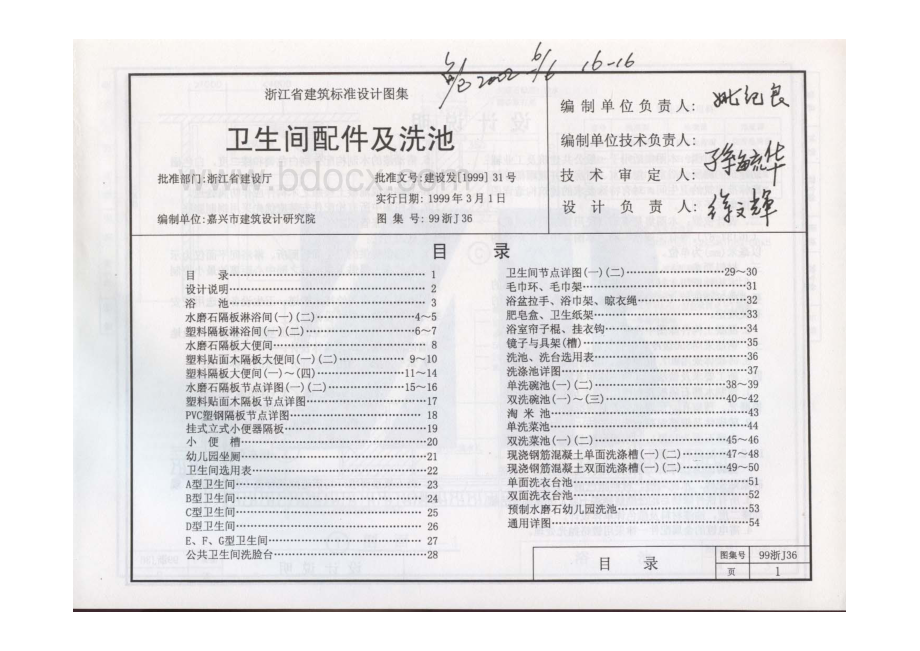 2002 6/6 16-16
浙江省建筑标准设计图集
卫生间配件及洗池
批准部门:浙江省建设厅
批准文号:建设发[1999]31号
实行日期:1999年3月1日
编制单位:嘉兴市建筑设计研究院
图 集 号:99浙J36
编制单位负责人: 姚纪良
编制单位技术负责人:
技术审定人:
设计负责人: 徐文辉
www.bdocx.com
目 录
目 录 1
设计说明 2
浴 池 3
水磨石隔板淋浴间(一)(二) 4~5
塑料隔板淋浴间(一)(二) 6~7
水磨石隔板大便间 8
塑料贴面木隔板大便间(一)(二) 9~10
塑料隔板大便间(一)~(四) 11~14
水磨石隔板节点详图(一)(二) 15~16
塑料贴面木隔板节点详图 17
PVC塑钢隔板节点详图 18
挂式立式小便器隔板 19
小 便 槽 20
幼儿园坐厕 21
卫生间选用表 22
A型卫生间 23
B型卫生间 24
C型卫生间 25
D型卫生间 26
E、F、G型卫生间 27
公共卫生间洗脸台 28
卫生间节点详图(一)(二) 29~30
毛巾环、毛巾架 31
浴盆拉手、浴巾架、晾衣绳 32
肥皂盒、卫生纸架 33
浴室帘子棍、挂衣钩 34
镜子与具架(槽) 35
洗池、洗台选用表 36
洗涤池详图 37
单洗碗池(一)(二) 38~39
双洗碗池(一)~(三) 40~42
淘 米 池 43
单洗菜池 44
双洗菜池(一)(二) 45~46
现浇钢筋混凝土单面洗涤槽(一)(二) 47~48
现浇钢筋混凝土双面洗涤槽(一)(二) 49~50
单面洗衣台池 51
双面洗衣台池 52
预制水磨石幼儿园洗池 53
通用详图 54
目 录
图集号 99浙J36
页 1